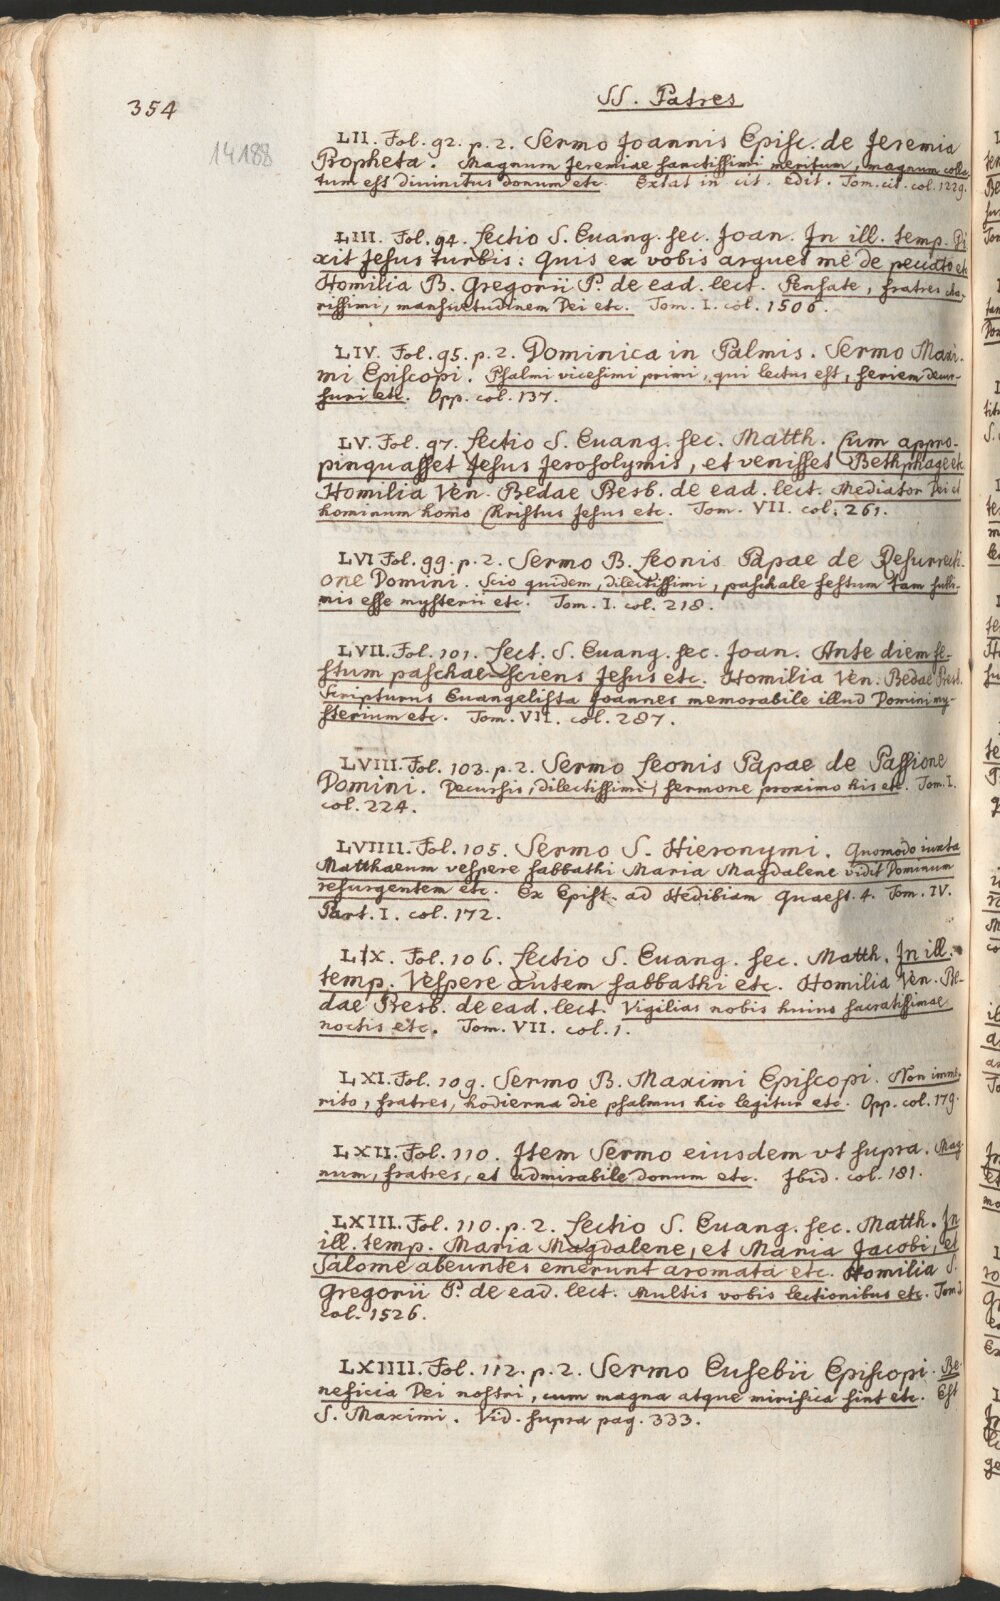 354
SS. Patres
14188
LII. Fol. 92. p. 2. Sermo Joannis Episc. de Jeremia
Propheta. Magnum Jeremiae sanctissimi meritum, magnum colla-
tum est divinitus donum etc. Extat in cit. Edit. Tom. cit. col. 1229.
LIII. Fol. 94. Lectio S. Euang. sec. Joan. In ill. temp. Di-
xit Jesus turbis: Quis ex vobis arguet me de peccato etc
Homilia B. Gregorii P. de ead. lect. Pensate, fratres cha-
rissimi, mansuetudinem Dei etc. Tom. I. col. 1506.
LIV. Fol. 95. p. 2. Dominica in Palmis. Sermo Maxi-
mi Episcopi. Psalmi vicesimi primi, qui lectus est, seriem decur-
suri etc. Opp. col. 137.
LV. Fol. 97. Lectio S. Euang. sec. Matth. Cum appro-
pinquasset Jesus Jerosolymis, et venisset Bethphage etc.
Homilia Ven. Bedae Presb. de ead. lect. Mediator Dei et
hominum homo Christus Jesus etc. Tom. VII. col. 261.
LVI Fol. 99. p. 2. Sermo B. Leonis Papae de Resurrecti-
one Domini. Scio quidem, dilectissimi, paschale festum tam subli-
mis esse mysterii etc. Tom. I. col. 218.
LVII. Fol. 101. Lect. S. Euang. sec. Joan. Ante diem fe-
stum paschae sciens Jesus etc. Homilia Ven. Bedae Presb.
Scripturus Euangelista Joannes memorabile illud Domini my-
sterium etc. Tom. VII. col. 287.
LVIII. Fol. 103. p. 2. Sermo Leonis Papae de Passione
Domini. Decursis, dilectissimi, sermone proximo his etc. Tom. I.
col. 224.
LVIIII. Fol. 105. Sermo S. Hieronymi. Quomodo iuxta
Matthaeum vespere sabbathi Maria Magdalene vidit Dominum
resurgentem etc. Ex Epist. ad Hedibiam Quaest. 4. Tom. IV.
Part. I. col. 172.
LIX. Fol. 106. Lectio S. Euang. sec. Matth. In ill.
temp. Vespere autem sabbathi etc. Homilia Ven. Be-
dae Presb. de ead. lect. Vigilias nobis huius sacratissimae
noctis etc. Tom. VII. col. 1.
LXI. Fol. 109. Sermo B. Maximi Episcopi. Non imme-
rito, fratres, hodierna die psalmus hic legitur etc. Opp. col. 179.
LXII. Fol. 110. Item Sermo eiusdem vt supra. Mag
num, fratres, et admirabile donum etc. Ibid. col. 181.
LXIII. Fol. 110. p. 2. Lectio S. Euang. sec. Matth. In
ill. temp. Maria Magdalene, et Maria Jacobi, et
Salome abeuntes emerunt aromata etc. Homilia S.
Gregorii P. de ead. lect. Multis vobis lectionibus etc. Tom I
col. 1526.
LXIIII. Fol. 112. p. 2. Sermo Eusebii Episcopi. Be-
neficia Dei nostri, cum magna atque mirifica sint etc. Est
S. Maximi. Vid. supra pag. 333.